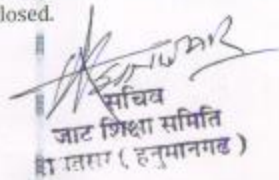 losed.
सचिव
जाट शिक्षा समिति
(हनुमानगढ)